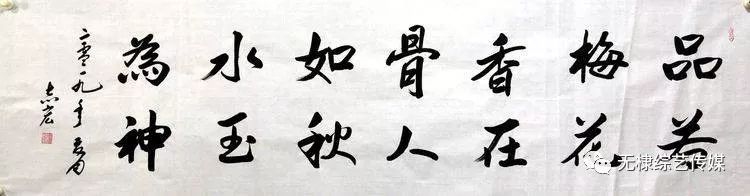 品若
梅花
香在
骨人
如秋
水玉
為神
二零一九年
志宏
无棣综艺传媒